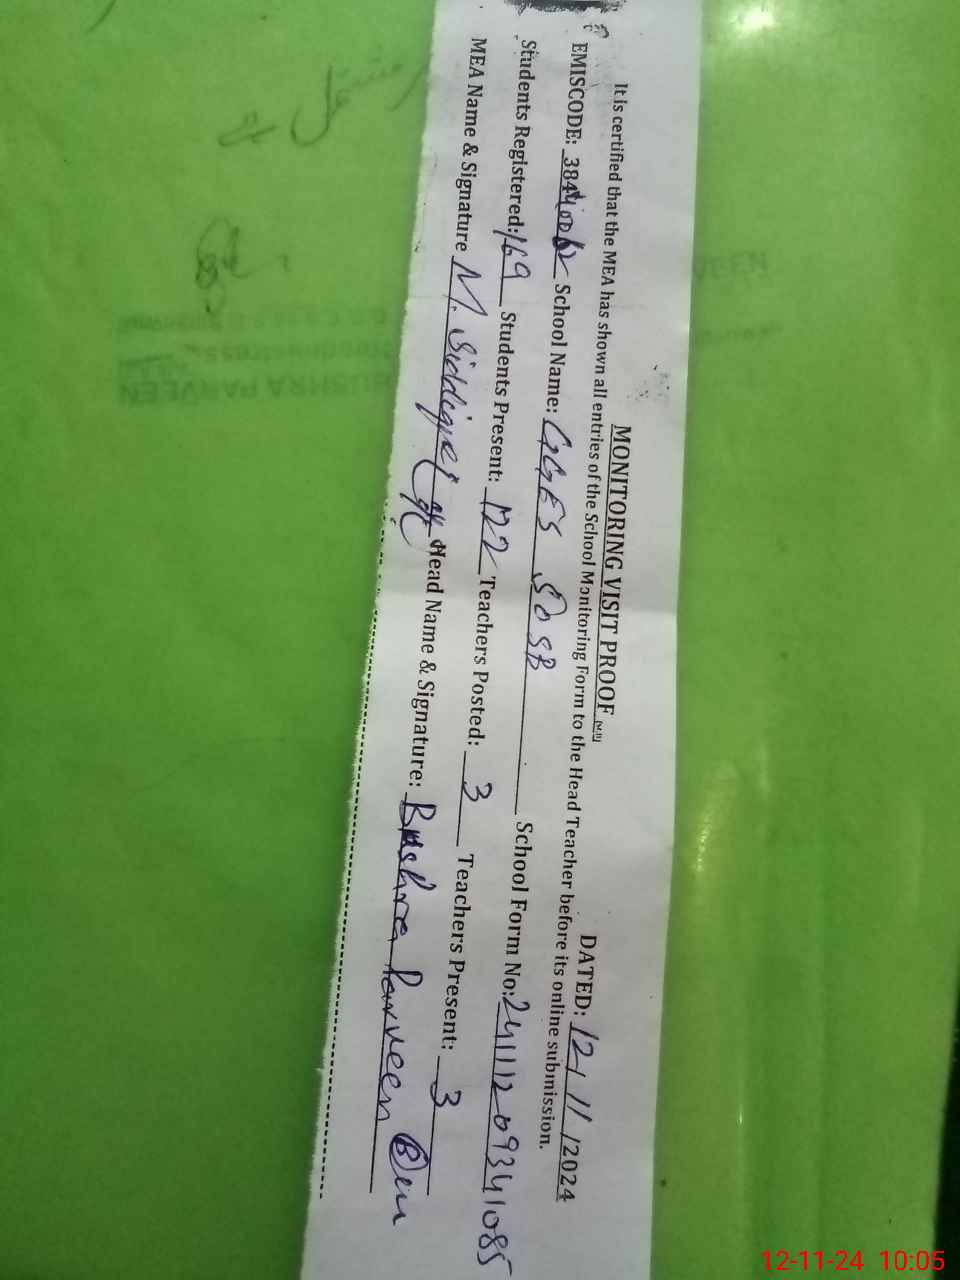 MONITORING VISIT PROOF
DATED: 12/11/2024
It is certified that the MEA has shown all entries of the School Monitoring Form to the Head Teacher before its online submission.
EMISCODE: School Name: GGES SOSB School Form No: 24111209341085
Students Registered: 169 Students Present: 122 Teachers Posted: 3 Teachers Present: 3
MEA Name & Signature M. Siddique Head Name & Signature: Bushra Parveen
BUSHRA PARVEEN
12-11-24 10:05